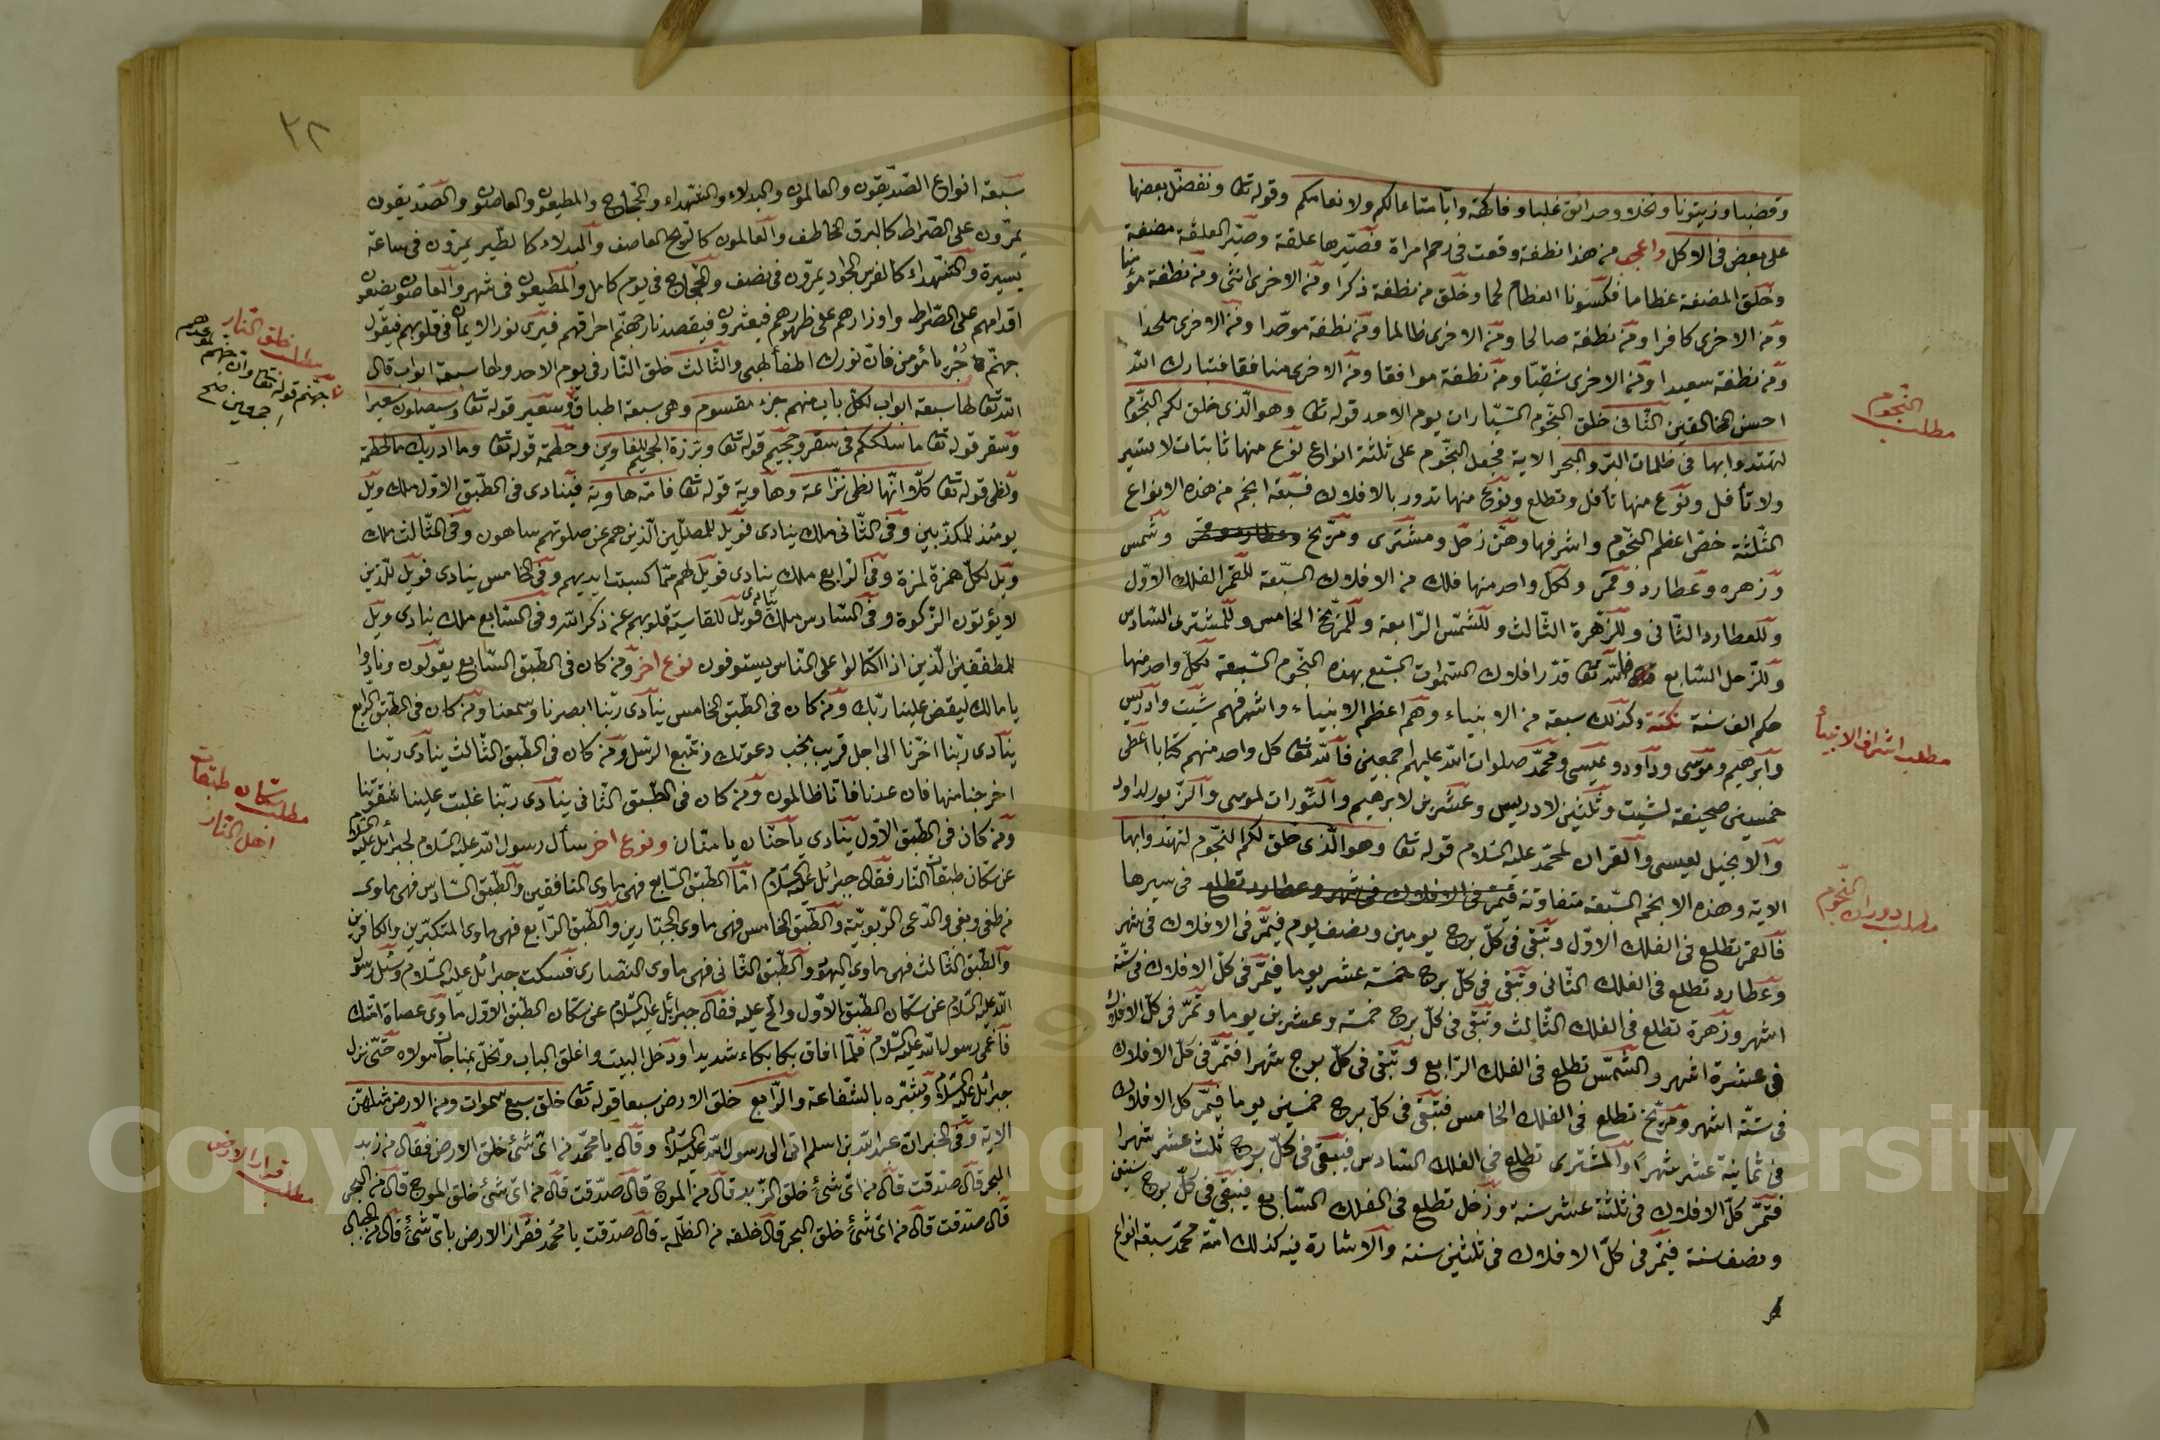 وقضبا وزيتونا ونخلا وحدائق غلبا وفاكهة وابا متاعا لكم ولانعامكم وقوله تعا ونفضل بعضها
على بعض فى الاكل واعجب من هذا نطفة وقعت فى رحم امراة فصيرها علقة وصير العلقة مضغة
وخلق المضغة عظاما فكسونا العظام لحما وخلق من نطفة ذكرا ومن الاخرى انثى ومن نطفة مؤمنا
ومن الاخرى كافرا ومن نطفة صالحا ومن الاخرى ظالما ومن نطفة موحدا ومن الاخرى ملحدا
ومن نطفة سعيدا ومن الاخرى شقيا ومن نطفة موافقا ومن الاخرى منافقا فتبارك الله
احسن الخالقين الثانى خلق النجوم السيارات يوم الاحد قوله تعا وهو الذى خلق لكم النجوم
لتهتدوا بها فى ظلمات البر والبحر الاية فجعل النجوم على ثلثة انواع نوع منها ثابتات لا يسير
ولا تأفل ونوع منها تأفل وتطلع ونوع منها تدور بالافلاك فسبعة انجم من هذه الانواع
الثلثة خص اعظم النجوم واشرفها وهن زحل ومشترى ومريخ وعطارد وقمر وشمس
وزهره وعطارد وقمر ولكل واحد منها فلك من الافلاك السبعة للقمر الفلك الاول
وللعطارد الثانى وللزهرة الثالث وللشمس الرابعة وللمريخ الخامس وللمشترى السادس
وللزحل السابع فالله تعا قدر افلاك السموات السبع بهذه النجوم السبعة لكل واحد منها
حكم الف سنة نكتة وكذلك سبعة من الانبياء وهم اعظم الانبياء واشرفهم شيت وادريس
وابرهيم وموسى وداود وعيسى ومحمد صلوات الله عليهم اجمعين فالله تعا كل واحد منهم كتابا اعطى
خمسين صحيفة لشيت وثلثين لادريس وعشرين لابرهيم والتورات لموسى والزبور لداود
والانجيل لعيسى والقران لمحمد عليه السلام قوله تعا وهو الذى خلق لكم النجوم لتهتدوا بها
الاية وهذه الانجم السبعة متفاوتة فتمر فى الافلاك فى شهر وعطارد تطلع فى سيرها
فالقمر تطلع فى الفلك الاول وتبقى فى كل برج يومين ونصف يوم فيمر فى الافلاك فى شهر
وعطارد تطلع فى الفلك الثانى وتبقى فى كل برج خمسة عشر يوما فيمر فى كل الافلاك فى ستة
اشهر وزهرة تطلع فى الفلك الثالث وتبقى فى كل برج خمسة وعشرين يوما وتمر فى كل الافلاك
فى عشرة اشهر والشمس تطلع فى الفلك الرابع وتبقى فى كل برج شهرا فتمر فى كل الافلاك
فى ستة اشهر ومريخ تطلع فى الفلك الخامس فتبقى فى كل برج خمسين يوما فيمر كل الافلاك
فى ثمانية عشر شهرا والمشترى تطلع فى الفلك السادس فيبقى فى كل برج ثلث عشر شهرا
فتمر كل الافلاك فى ثلثة عشر سنة وزحل تطلع فى الفلك السابع فيبقى فى كل برج سنتين
ونصف سنة فيمر فى كل الافلاك فى ثلثين سنة والاشارة فيه كذلك امة محمد سبعة انواع
مطلب النجوم
مطلب اشراف الانبيأ
مطلب دوران النجوم
٣٢
سبعة انواع الصديقون والعالمون والبدلاء والشهداء والحجاج والمطيعون والعاصون والصديقون
يمرون على الصراط كالبرق الخاطف والعالمون كالريح العاصف والبدلاء كالطير يمرون فى ساعة
يسيرة والشهداء كالفرس الجواد يمرون فى نصف والحجاج فى يوم كامل والمطيعون فى شهر والعاصون يضعون
اقدامهم على الصراط واوزارهم على ظهورهم فيعثرون فيقصد نار جهنم احراقهم فيرى نور الايمان فى قلوبهم فيقول
جهنم جز يا مؤمن فان نورك اطفأ لهبى والثالث خلق النار فى يوم الاحد ولها سبعة ابواب قال
الله تعا لها سبعة ابواب لكل باب منهم جزء مقسوم وهى سبعة اطباق وسعير قوله تعا وسيصلون سعيرا
وسقر قوله تعا ما سلككم فى سقر وجحيم قوله تعا وبرزة الجحيم للغاوين وحطمة قوله تعا وما ادريك ما الحطمة
ولظى قوله تعا كلا انها لظى نزاعة وهاوية قوله تعا فامه هاوية فينادى فى الطبق الاول ملك ويل
يومئذ للمكذبين وفى الثانى ملك ينادى فويل للمصلين الذين هم عن صلوتهم ساهون وفى الثالث ملك
ويل لكل همزة لمزة وفى الرابع ملك ينادى فويل لهم مما كسبت ايديهم وفى الخامس ينادى فويل للذين
لا يؤتون الزكوة وفى السادس ملك ينادى فويل للقاسية قلوبهم عن ذكر الله وفى السابع ملك ينادى ويل
للمطففين الذين اذا اكتالوا على الناس يستوفون نوع اخر ومن كان فى الطبق السابع يقولون ونادوا
يا مالك ليقض علينا ربك ومن كان فى الطبق الخامس ينادى ربنا ابصرنا وسمعنا ومن كان فى الطبق الرابع
ينادى ربنا اخرنا الى اجل قريب نجب دعوتك ونتبع الرسل ومن كان فى الطبق الثالث ينادى ربنا
اخرجنا منها فان عدنا فانا ظالمون ومن كان فى الطبق الثانى ينادى ربنا غلبت علينا شقوتنا
ومن كان فى الطبق الاول ينادى يا حنان يا منان ونوع اخر سأل رسول الله عليه السلام لجبرائل عليه السلام
عن سكان طبقات النار فقال جبرائل عليه السلام اما الطبق السابع فهى مأوى المنافقين والطبق السادس فهى مأوى
من طغى وبغى والدعى الربوبية والطبق الخامس فهى مأوى الجبارين والطبق الرابع فهى مأوى المتكبرين والكافرين
والطبق الثالث فهى مأوى اليهود والطبق الثانى فهى مأوى النصارى فسكت جبرائل عليه السلام وسئل رسول
الله عليه السلام عن سكان الطبق الاول والح عليه فقال جبرائل عليه السلام عن سكان الطبق الاول مأوى عصاة امتك
فاغمى رسول الله عليه السلام فلما افاق بكا بكاء شديدا ودخل البيت واغلق الباب وتخل بمناجات مولاه حتى نزل
جبرائل عليه السلام وبشره بالشفاعة والرابع خلق الارض سبعا قوله تعا خلق سبع سموات ومن الارض مثلهن
الاية وفى الخبر ان عبد الله بن اسلم اتى الى رسول الله عليه السلام وقال يا محمد من اى شئ خلق الارض فقال من زبد
البحر قال صدقت قال من اى شئ خلق الزبد قال من الموج قال صدقت قال من اى شئ خلق الموج قال من البحر
قال صدقت قال من اى شئ خلق البحر قال خلقه من الظلمة قال صدقت يا محمد فقرار الارض باى شئ قال من الجبال
مطلب خلق النار
جهنم قوله تعا وان جهنم لموعدهم
اجمعين صح
مطلب سكان طبقات
اهل النار
مطلب قرار الارض
Copyright © King Saud University